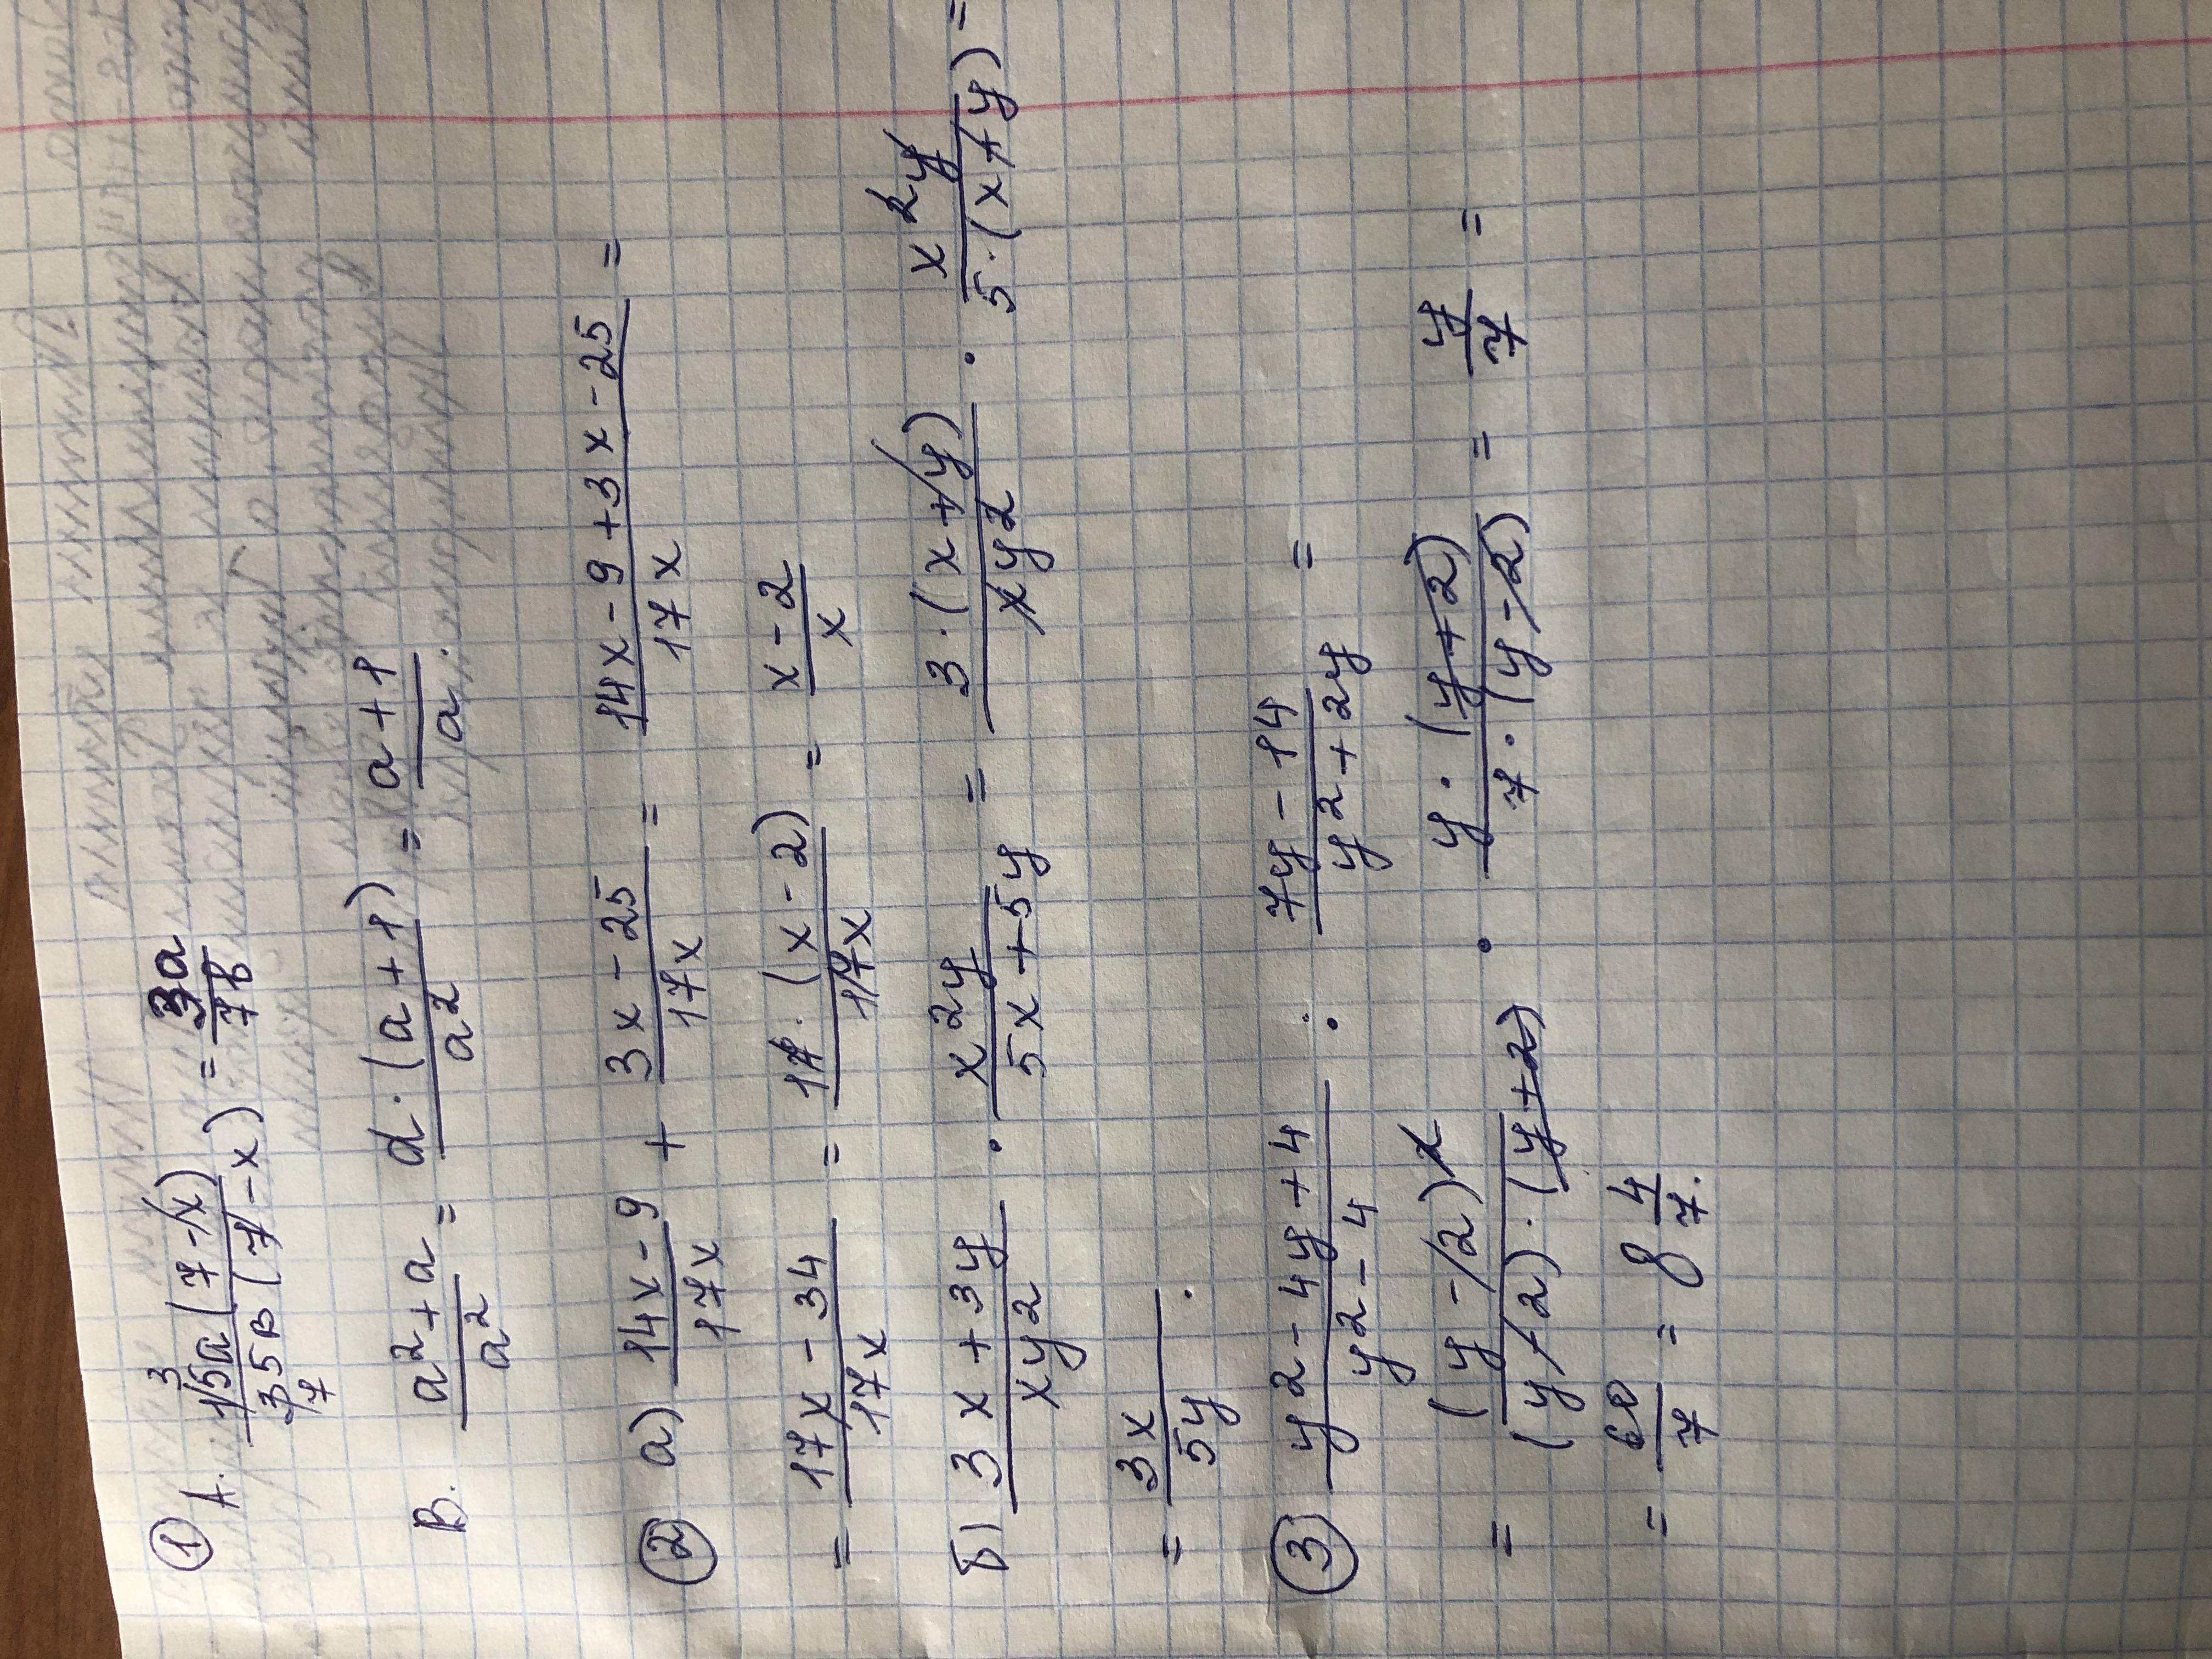 ① А. 15а(7-х)/35в(7-х) = 3а/7в
3
7
В. a²+a/a² = a·(a+1)/a² = a+1/a.
② а) 14x-9/17x + 3x-25/17x = 14x-9+3x-25/17x =
= 17x-34/17x = 17·(x-2)/17x = x-2/x
б) 3x+3y/xy² · x²y/5x+5y = 3·(x+y)/xy² · x²y/5·(x+y) =
= 3x/5y.
③ y²-4y+4/y²-4 : 7y-14/y²+2y =
= (y-2)²/(y-2)·(y+2) · y·(y+2)/7·(y-2) = y/7 =
= 60/7 = 8 4/7.